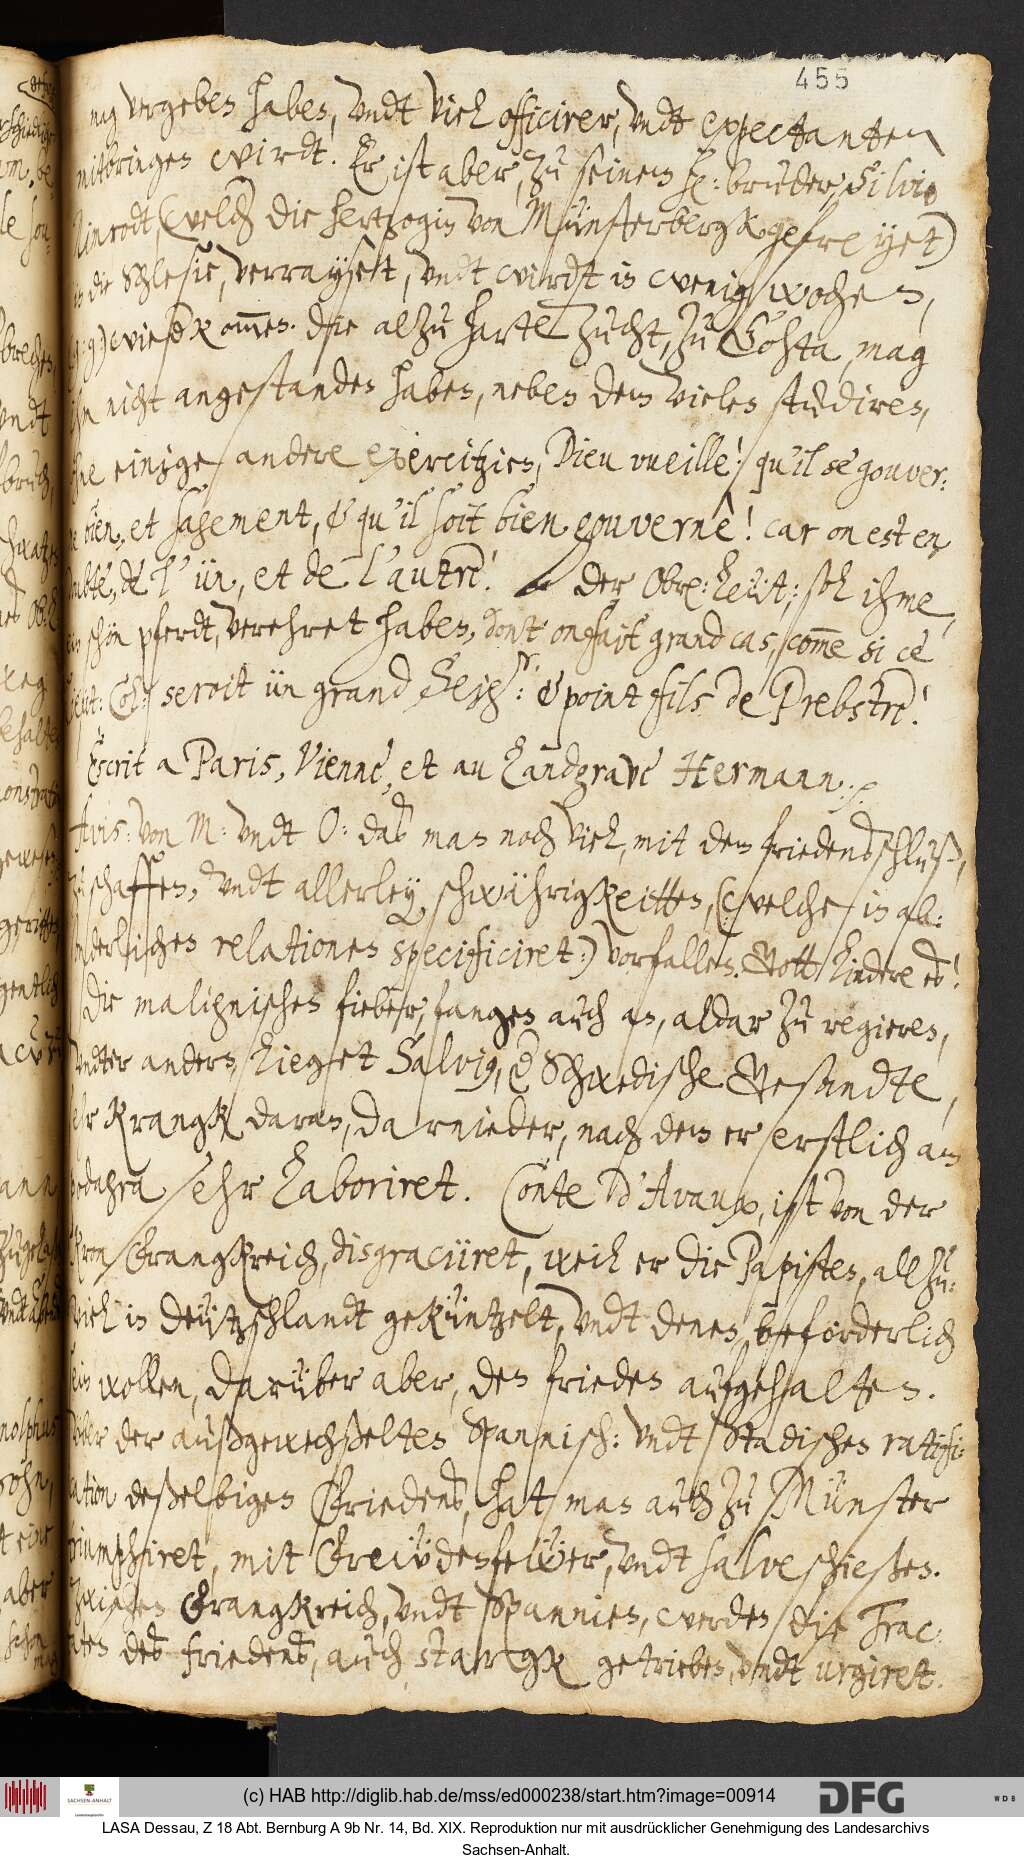 455
mag vergeben haben, vndt viel officirer, vndt expectanten
mitbringen wirdt. Er ist aber, zu seinem H: bruder, Silvio
Nimrodt, (welch die Hertzogin von Münsterbergk gefreyet)
in die Schlesie, verrayset, vndt wirdt in wenig wochen,
(g: g:) wiederkommen. Die alzu harte Zucht, zu Gohta, mag
ihm nicht angestanden haben, neben dem vielen studiren,
ohne einige andere exercitzien, Dieu vueille! qu'il se gouver:
ne bien, et sagement, & qu'il soit bien gouvernè! car on est en
doubte, de l'ün, et de l'autre! der Obr: Leüt: soll ihme,
ein schön pferdt, verehret haben, dont on fait grand cas, comme si ce
Leüt: Col: seroit ün grand & point fils de Prebstre!
Escrit a Paris, Vienne, et au Landgrave Hermann. /
Avis: von M: vndt O: daß man noch viel, mit dem friedensschluß,
zuschaffen, vndt allerley schwührigkeitten, (welche in ab:
sonderlichen relationen specificiret:) vorfallen. Gott lindere es!
Die malignischen fieber, fangen auch an, aldar zu regieren,
vndter andern, lieget Salvius, der Schwedische Gesandte,
sehr krangk daran, darnieder, nach dem er erstlich am
podagra sehr laboriret. Conte d'Avaux, ist von der
Kron Frangkreich, disgraciiret, weil er die Papisten, allzu:
viel in Deützschlandt geküntzelt, vndt denen beförderlich
sein wollen, darüber aber, den frieden aufgehalten.
Vber der außgewechßelten Spannisch: vndt Stadischen ratifi:
cation deßelbigen Friedens, hat man auch zu Münster
triumphiret, mit Freüdenfewer, vndt salve schießen.
Zwischen Frangkreich, vndt Spannien, werden die Trac:
taten des friedens, auch stargk getrieben, vndt urgiret.
(c) HAB http://diglib.hab.de/mss/ed000238/start.htm?image=00914
SACHSEN-ANHALT
DFG
WDB
LASA Dessau, Z 18 Abt. Bernburg A 9b Nr. 14, Bd. XIX. Reproduktion nur mit ausdrücklicher Genehmigung des Landesarchivs
Sachsen-Anhalt.